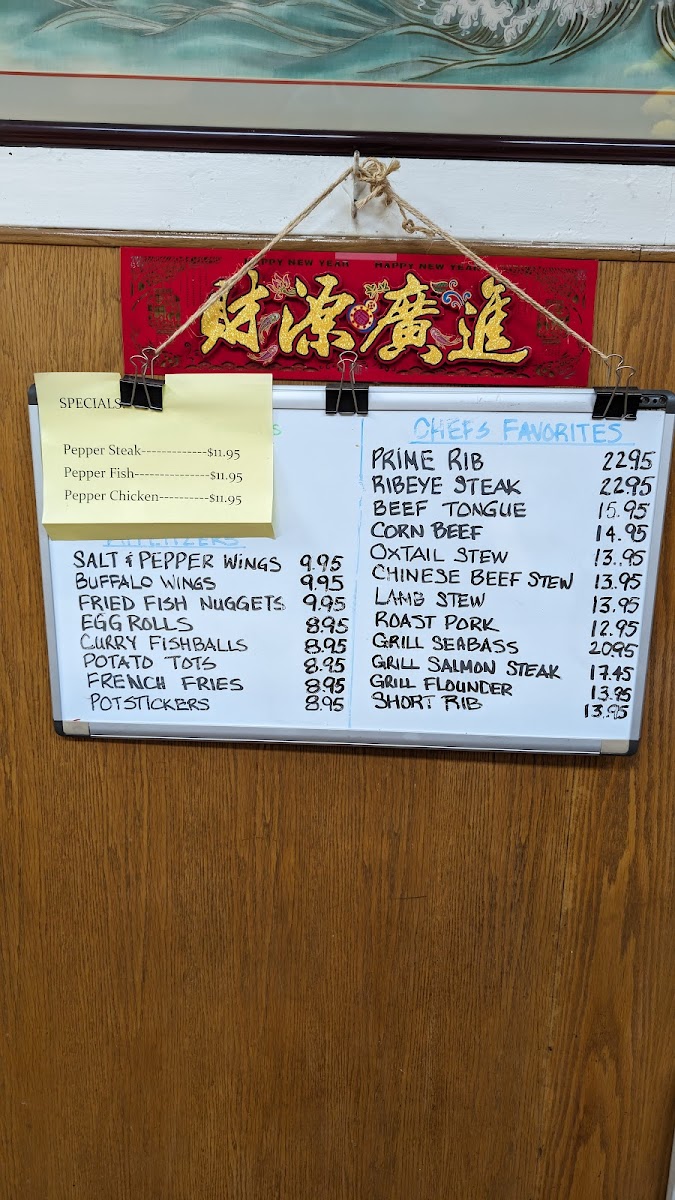 HAPPY NEW YEAR HAPPY NEW YEAR
財源廣進
SPECIALS
Pepper Steak-------------$11.95
Pepper Fish---------------$11.95
Pepper Chicken----------$11.95
S
APPETIZERS
SALT & PEPPER WINGS 9.95
BUFFALO WINGS 9.95
FRIED FISH NUGGETS 9.95
EGG ROLLS 8.95
CURRY FISHBALLS 8.95
POTATO TOTS 8.95
FRENCH FRIES 8.95
POTSTICKERS 8.95
CHEFS FAVORITES
PRIME RIB 22.95
RIBEYE STEAK 22.95
BEEF TONGUE 15.95
CORN BEEF 14.95
OXTAIL STEW 13.95
CHINESE BEEF STEW 13.95
LAMB STEW 13.95
ROAST PORK 12.95
GRILL SEABASS 20.95
GRILL SALMON STEAK 17.45
GRILL FLOUNDER 13.95
SHORT RIB 13.95